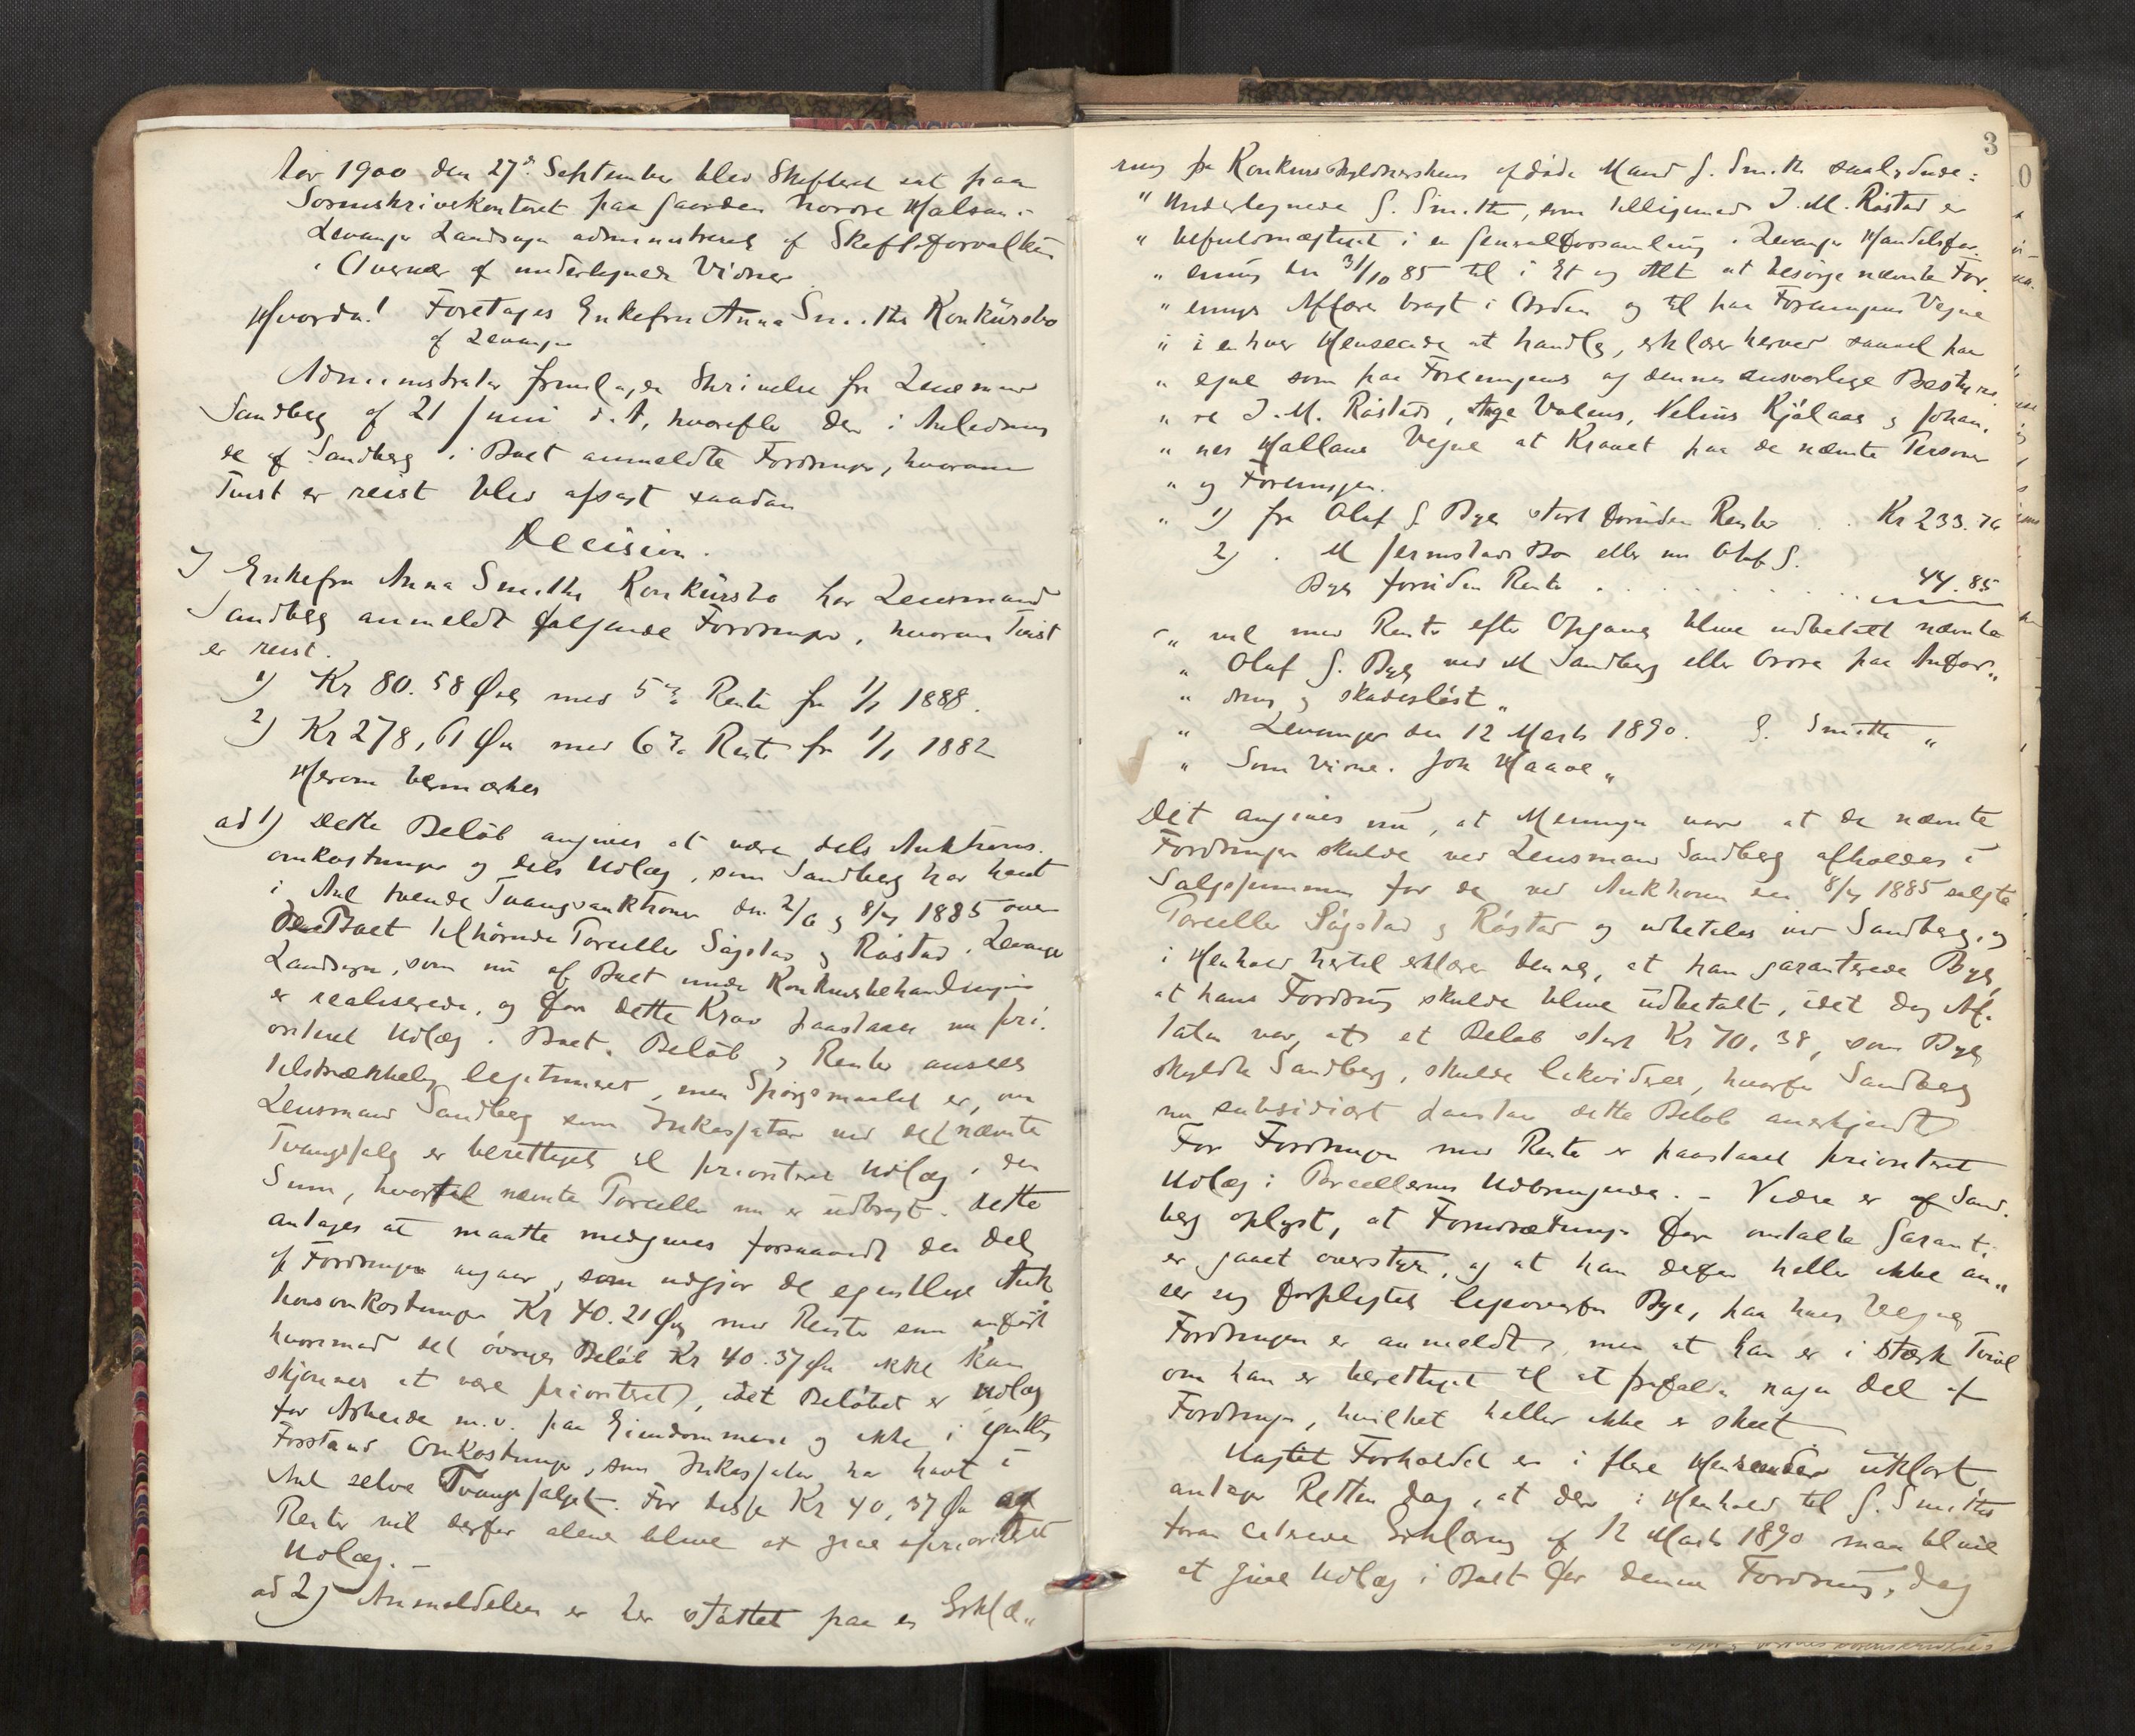 Aar 1900 den 27de September blev Skifteret sat paa
Sorenskriverkontoret paa Gaarden Nordre Halsan i
Levanger Landsogn administreret af Skifteforvalteren
i Overvær af undertegnede Vidner
Hvorda! Foretages Enkefru Anna Smiths Konkursbo
af Levanger
Administrator fremlagde Skrivelse fra Lensmand
Sandberg af 21 Juni d. A, hvorefter der i Anlednin
de af Sandberg i Boet anmeldte Fordringer, hvorom
Tvist er reist blev afsagt saadan
Decision.
I Enkefru Anna Smiths Konkursbo har Lensmand
Sandberg anmeldt følgende Fordringer, hvorom Tvist
er reist.
1) Kr 80.58 Øre med 5% Rente fra 1/1 1888.
2) Kr 278,61 Øre med 6% Rente fra 1/1 1882
Herom bemærkes
ad 1) Dette Beløb angives at være dels Auktions-
omkostninger og dels Udlæg, som Sandberg har havt
i Anl tvende Tvangsauktioner den 2/6 og 8/7 1885 over
de Boet tilhørende Parceller Sågstad og Råstad i Levanger
Landsogn, som nu af Boet under Konkursbehandlingen
er realiserede, og for dette Krav paastaaes nu pri-
oriteret Udlæg i Boet. Beløb og Renter ansees
tilstrækkelig legitimeret, men Spørgsmaalet er, om
Lensmand Sandberg som Inkassator ved det nævnte
Tvangssalg er berettiget til prioriteret Udlæg i den
Sum, hvortil nævnte Parceller nu er udbragt. Dette
antages at maatte medgives forsaavidt den Del
af Fordringen angaar, som udgjør de egentlige Auk
tionsomkostninger Kr 40.21 Øre med Renter som anført
hvorimod det øvrige Beløb Kr 40.37 Øre ikke kan
skjønnes at være prioriteret, idet Beløbet er Udlæg
for Arbeide m.v. paa Eiendommene og ikke i egentlig
Forstand Omkostninger, som Inkassator har havt i
Anl selve Tvangssalget. For disse Kr 40,37 Øre og
Renter vil derfor alene blive at give uprioriteret
Udlæg. –
ad 2) Anmeldelsen er her støttet paa en Erklæ„
3
ring fra Konkursskyldnerskens afdøde Mand G. Smith saalydende:
" Undertegnede G. Smith, som tilligemed J. M. Råstad er
" befuldmægtiget i en Generalforsamling i Levanger Handelsfor-
" ening den 31/10 85 til i Et og Alt at besørge nævnte For-
" enings Affærer bragt i Orden og til paa Foreningens Vegne
" i enhver Henseende at handle, erklærer herved saavel paa
" egne som paa Foreningens og dennes ansvarlige Bestyre-
" re J. M. Råstads, Vegne at Kravet paa de nævnte Personer
" og Foreningen.
" 1) fra Olaf G. Bye stort foruden Renter . . Kr 233.76
2) . M Jermstads Bo eller nu Olaf G.
Bye foruden Rente . . . . . . . 44.85
" vil med Rente efter Opgave blive udbetalt nævnte
" Olaf G. Bye ved M Sandberg eller Ordre paa Anfor„
" dring og skadesløst „
" Levanger den 12 Marts 1890. G. Smith "
" Som Vidne. Joh Haave "
Det angives nu, at Meningen var at de nævnte
Fordringer skulde ved Lensmand Sandberg afholdes i
Salgssummen for de ved Auktionen den 8/7 1885 solgte
Parceller Sågstad og Råstad og udbetales ved Sandberg, og
i Henhold hertil erklærer denne, at han garanterede Bye,
at hans Fordring skulde blive udbetalt, idet dog Af-
talen var, at et Beløb stort Kr 70,38, som Bye
skyldte Sandberg, skulde likvideres, hvorfor Sandberg
nu subsidiært paastaar dette Beløb anerkjendt
For Fordringen med Rente er paastaaet prioriteret
Udlæg i Parcellernes Udbringende. – Videre er af Sand-
berg oplyst, at Forudsætningen for omtalte Garanti
er gaaet overstyr, og at han derfor heller ikke an„
ser sig forpligtet ligeoverfor Bye, paa hvis Vegne
Fordringen er anmeldt, men at han er i stærk Tvivl
om han er berettiget til at frafalde nogen Del af
Fordringen, hvilket heller ikke er skeet
Uagtet Forholdet er i flere Henseender uklart,
antager Retten dog, at der i Henhold til G. Smiths
foran citerede Erklæring af 12 Marts 1890 maa blive
at give Udlæg i Boet for denne Fordring, dog